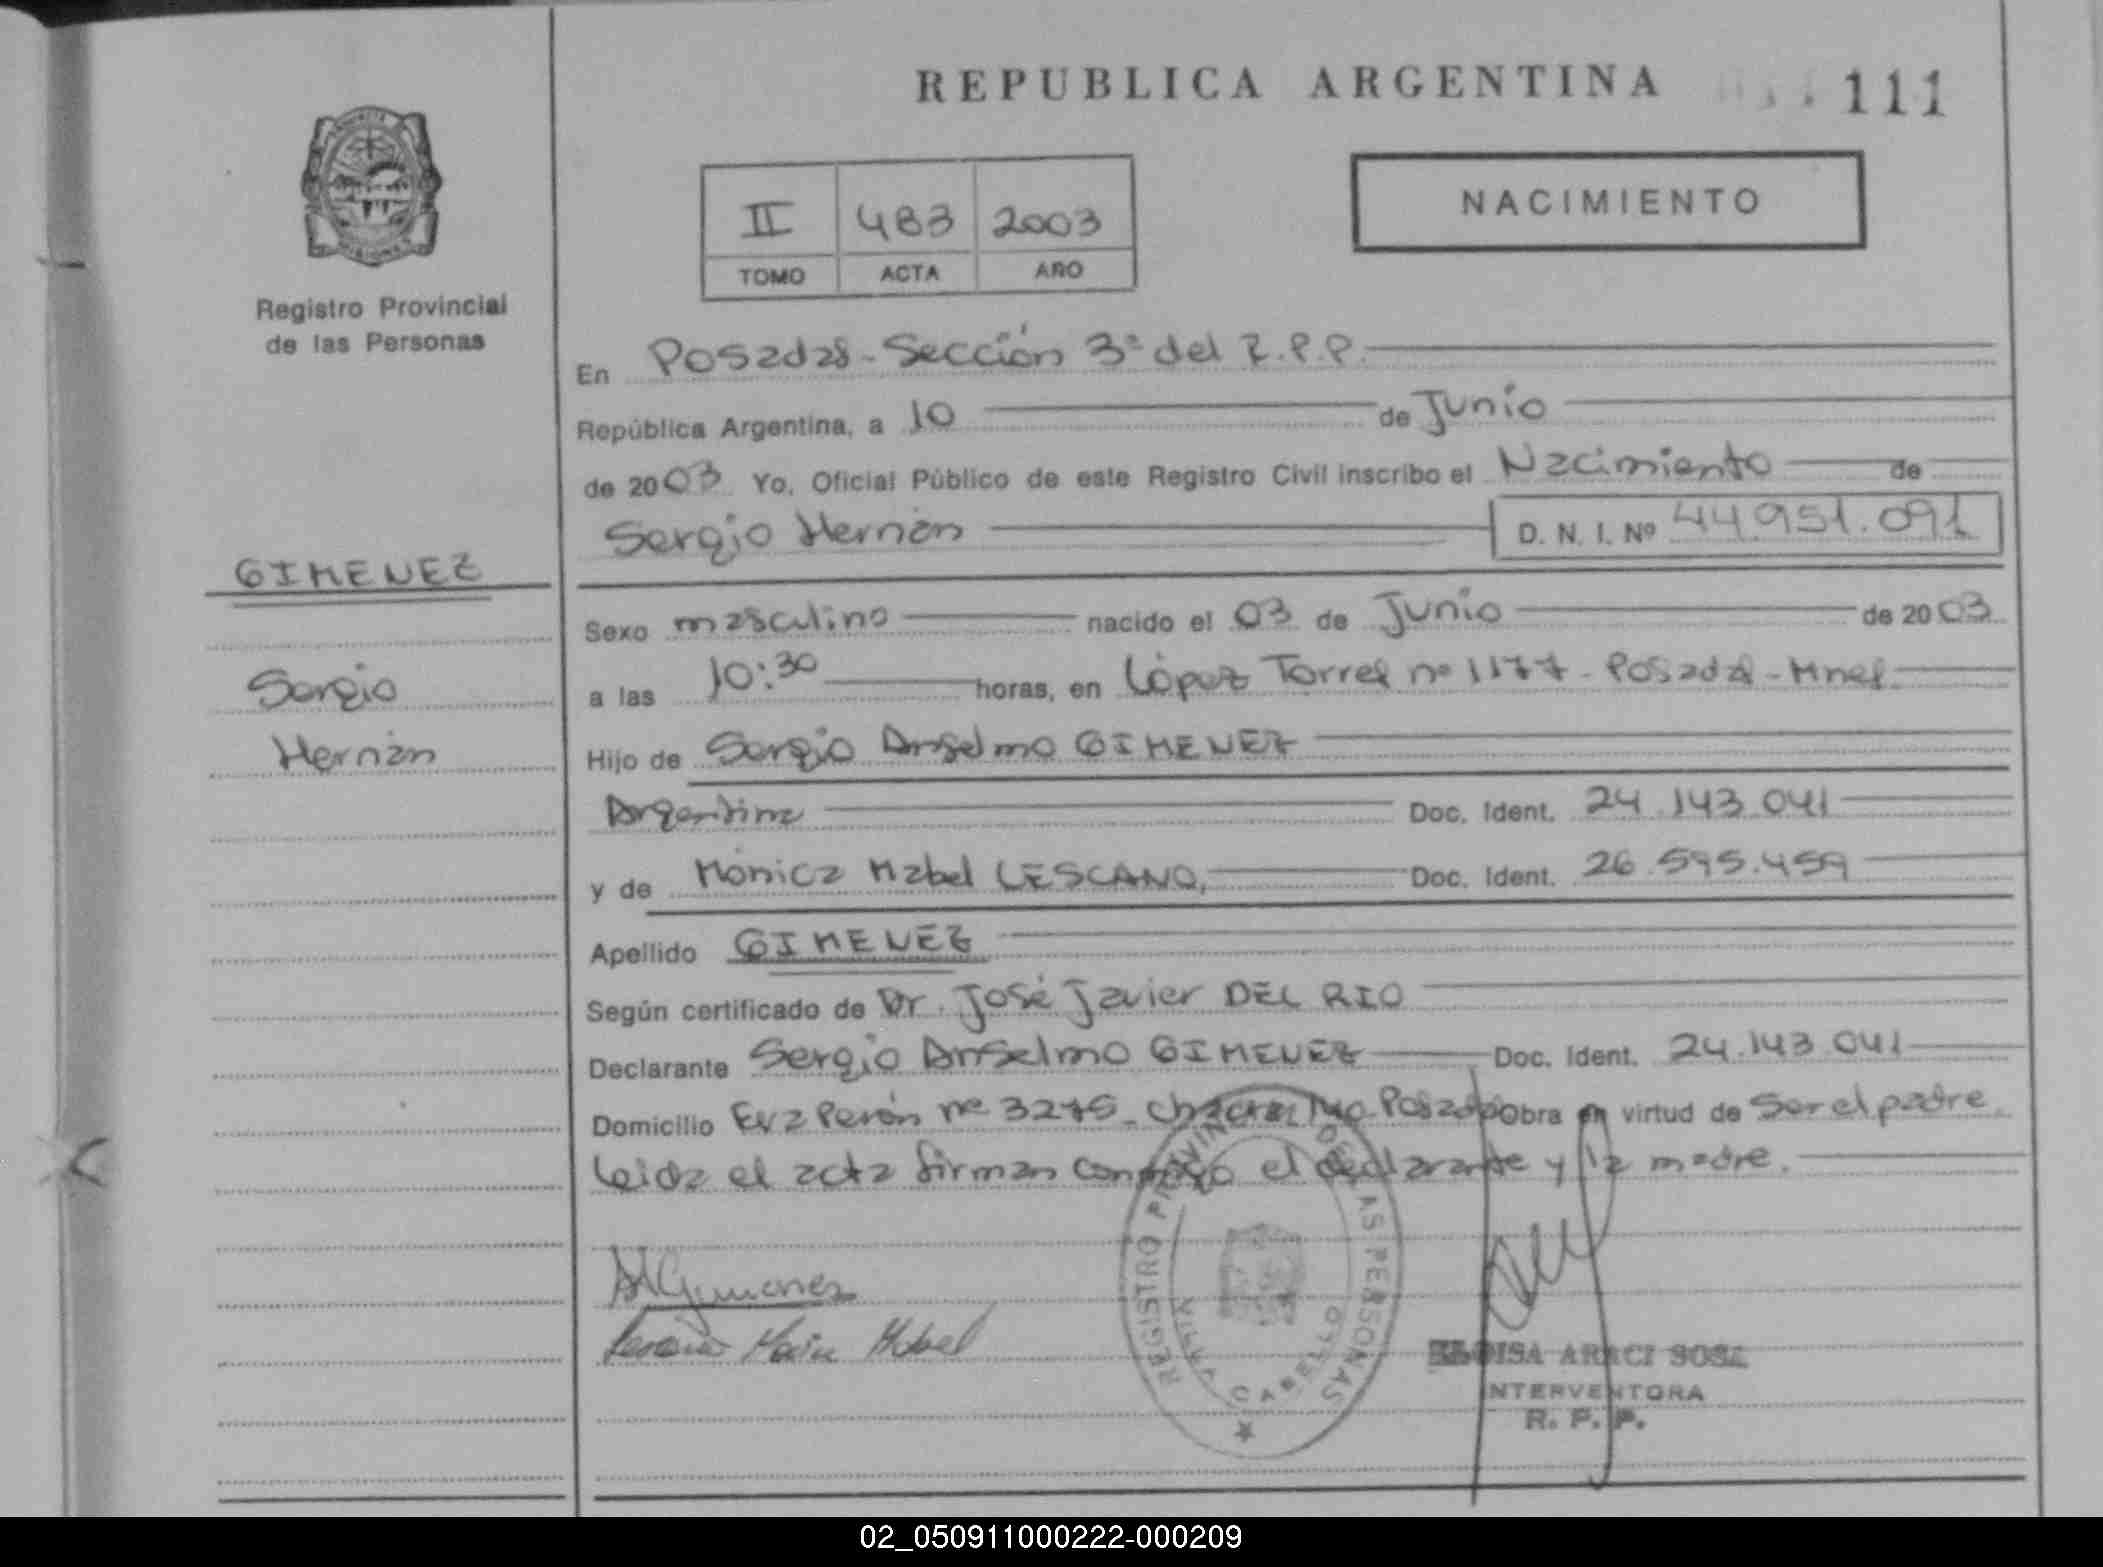 REPUBLICA ARGENTINA 111
NACIMIENTO
II 483 2003
TOMO ACTA AÑO
Registro Provincial
de las Personas
En Posadas - Sección 3ª del R.P.P.
República Argentina, a 10 de Junio
de 2003 Yo, Oficial Público de este Registro Civil inscribo el Nacimiento de
Sergio Hernán D. N. I. Nº 44.951.091
GIMENEZ
Sergio
Hernán
Sexo masculino nacido el 03 de Junio de 2003
a las 10:30 horas, en López Torres nº 1177 - Posadas - Mnes.
Hijo de Sergio Anselmo GIMENEZ
Argentina Doc. Ident. 24.143.041
y de Mónica Mabel LESCANO, Doc. Ident. 26.595.459
Apellido GIMENEZ
Según certificado de Dr. José Javier DEL RIO
Declarante Sergio Anselmo GIMENEZ Doc. Ident. 24.143.041
Domicilio Eva Perón nº 3275 - Posadas Obra en virtud de Ser el padre.
Leida el acta firman conmigo el declarante y la madre.
REGISTRO PROVINCIAL DE LAS PERSONAS
VILLA CABELLO
ELOISA ARACI SOSA
INTERVENTORA
R. P. P.
02_050911000222-000209